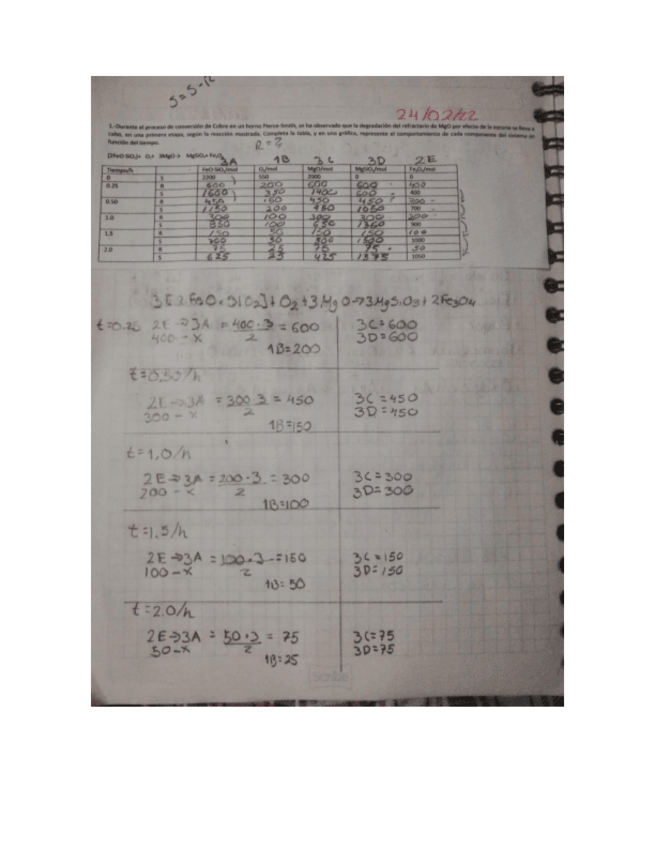 S=S-R
24/02/22
1.-Durante el proceso de conversión de Cobre en un horno Pierce-Smith, se ha observado que la degradación del refractario de MgO por efecto de la escoria se lleva a
cabo, en una primera etapa, según la reacción mostrada. Completa la tabla, y en una gráfica, represente el comportamiento de cada componente del sistema en
función del tiempo.
R=?
3A 1B 3C 3D 2E
Tiempo/h FeO·SiO₂/mol O₂/mol MgO/mol MgSiO₃/mol Fe₃O₄/mol
0 S 2200 550 2000 0 0
0.25 R 600 200 600 600 400
S 1600 350 1400 600 400
0.50 R 450 150 450 450 300
S 1150 200 950 1050 700
1.0 R 300 100 300 300 200
S 850 100 650 1350 900
1.5 R 150 50 150 150 100
S 700 50 500 1500 1000
2.0 R 75 25 75 75 50
S 625 25 425 1575 1050
3[2FeO·SiO2]+O2+3MgO→3MgSiO3+2Fe3O4
t=0.25 2E→3A = 400·3 = 600 3C=600
400-x 2 3D=600
1B=200
t=0.50/h
2E→3A = 300·3 = 450 3C=450
300-x 2 3D=450
1B=150
t=1,0/h
2E→3A = 200·3 = 300 3C=300
200-x 2 3D=300
1B=100
t=1,5/h
2E→3A = 100·3 =150 3C=150
100-x 2 3D=150
1B=50
t=2.0/h
2E→3A = 50·3 = 75 3C=75
50-x 2 3D=75
1B=25
Scribe